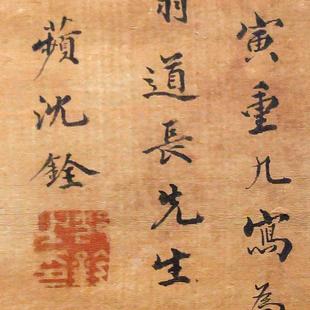 寅重九寫為
翁道長先生
蘋沈銓